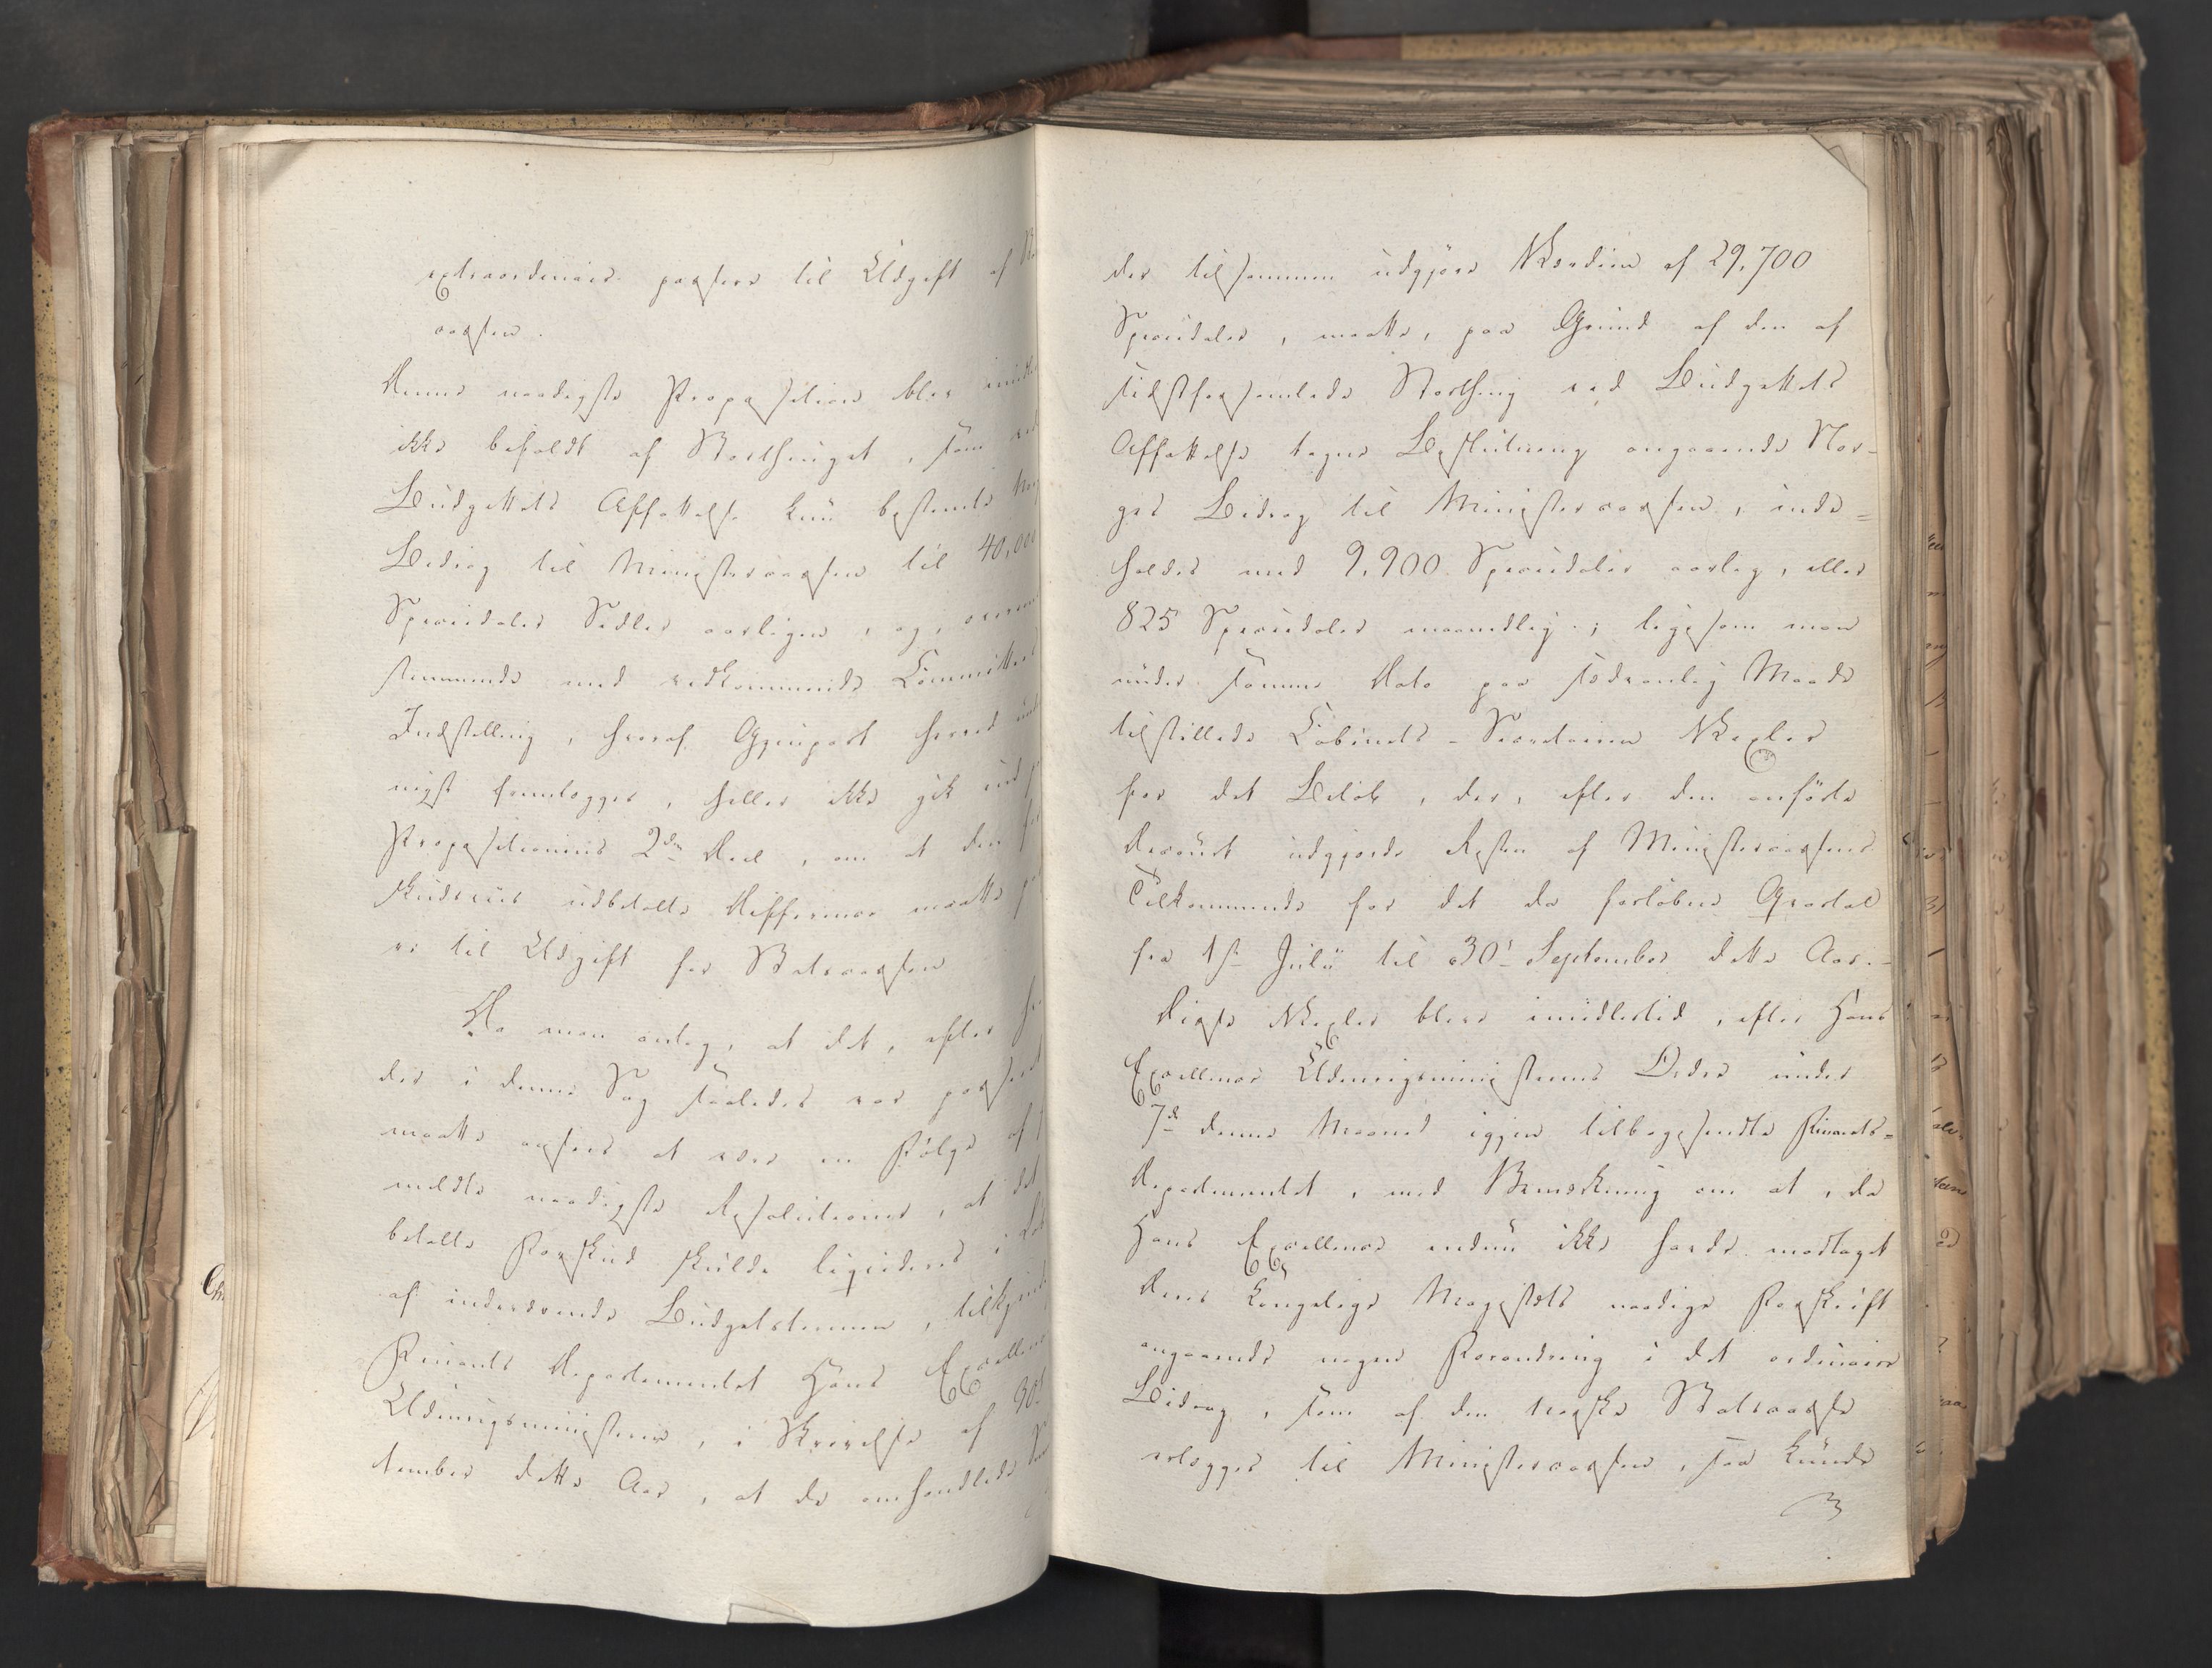 extraordinaire passere til Udgift af
cassen.
Denne naadigste Proposition blev
ikke bifaldt af Storthinget, som ved
Budgettets Affattelse kun bestemte
Bidrag til Ministercassen til 40,000
Speciedaler Sedler aarligen, og,
stemmende med vedkommende Committees
Indstilling, hvoraf Gjenpart herved
nigst fremlægges, heller ikke gik ind
Propositionens 2den Deel, om at den
skudsviis udbetalte Difference maatte
res til Udgift for Statscassen
Da man antog, at det, efter
der i denne Sag saaledes var passeret
maatte ansees at være en Følge af
meldte naadigste Resolutioner, at det
betalte Forskud skulde liqvideres i
af indeværende Budgetstermin,
Finants Departementet Hans Excellence
Udenrigsministeren, i Skrivelse af 30te
tember dette Aar, at de omhandlede
der tilsammen udgjøre Værdien af 29,700
Speciedaler, maatte, paa Grund af den af
sidstforsamlede Storthing ved Budgettets
Affattelse tagne Beslutning angaaende Nor-
ges Bidrag til Ministercassen, inde=
holdes med 9,900 Speciedaler aarlig, eller
825 Speciedaler maanedlig; ligesom man
under samme Dato paa sædvanlig Maade
tilstillede Cabinets-Secretairen Vexler
for det Beløb, der, efter den anførte
Decourt udgjorde Resten af Ministercassens
Tilkommende for det da forløbne Qvartal
fra 1ste Julii til 30te September dette Aar.-
Disse Vexler bleve imidlertid, efter Hans
Excellence Udenrigsministerens Ordre under
7de denne Maaned igjen tilbagesendte Finants=
Departementet, med Bemærkning om at, da
Hans Excellence endnu ikke havde modtaget
Deres Kongelige Majestæts naadige Forskrift
angaaende nogen Forandring i det ordinaire
Bidrag, som af den norske Statscasse
erlægges til Ministercassen, saa kunde